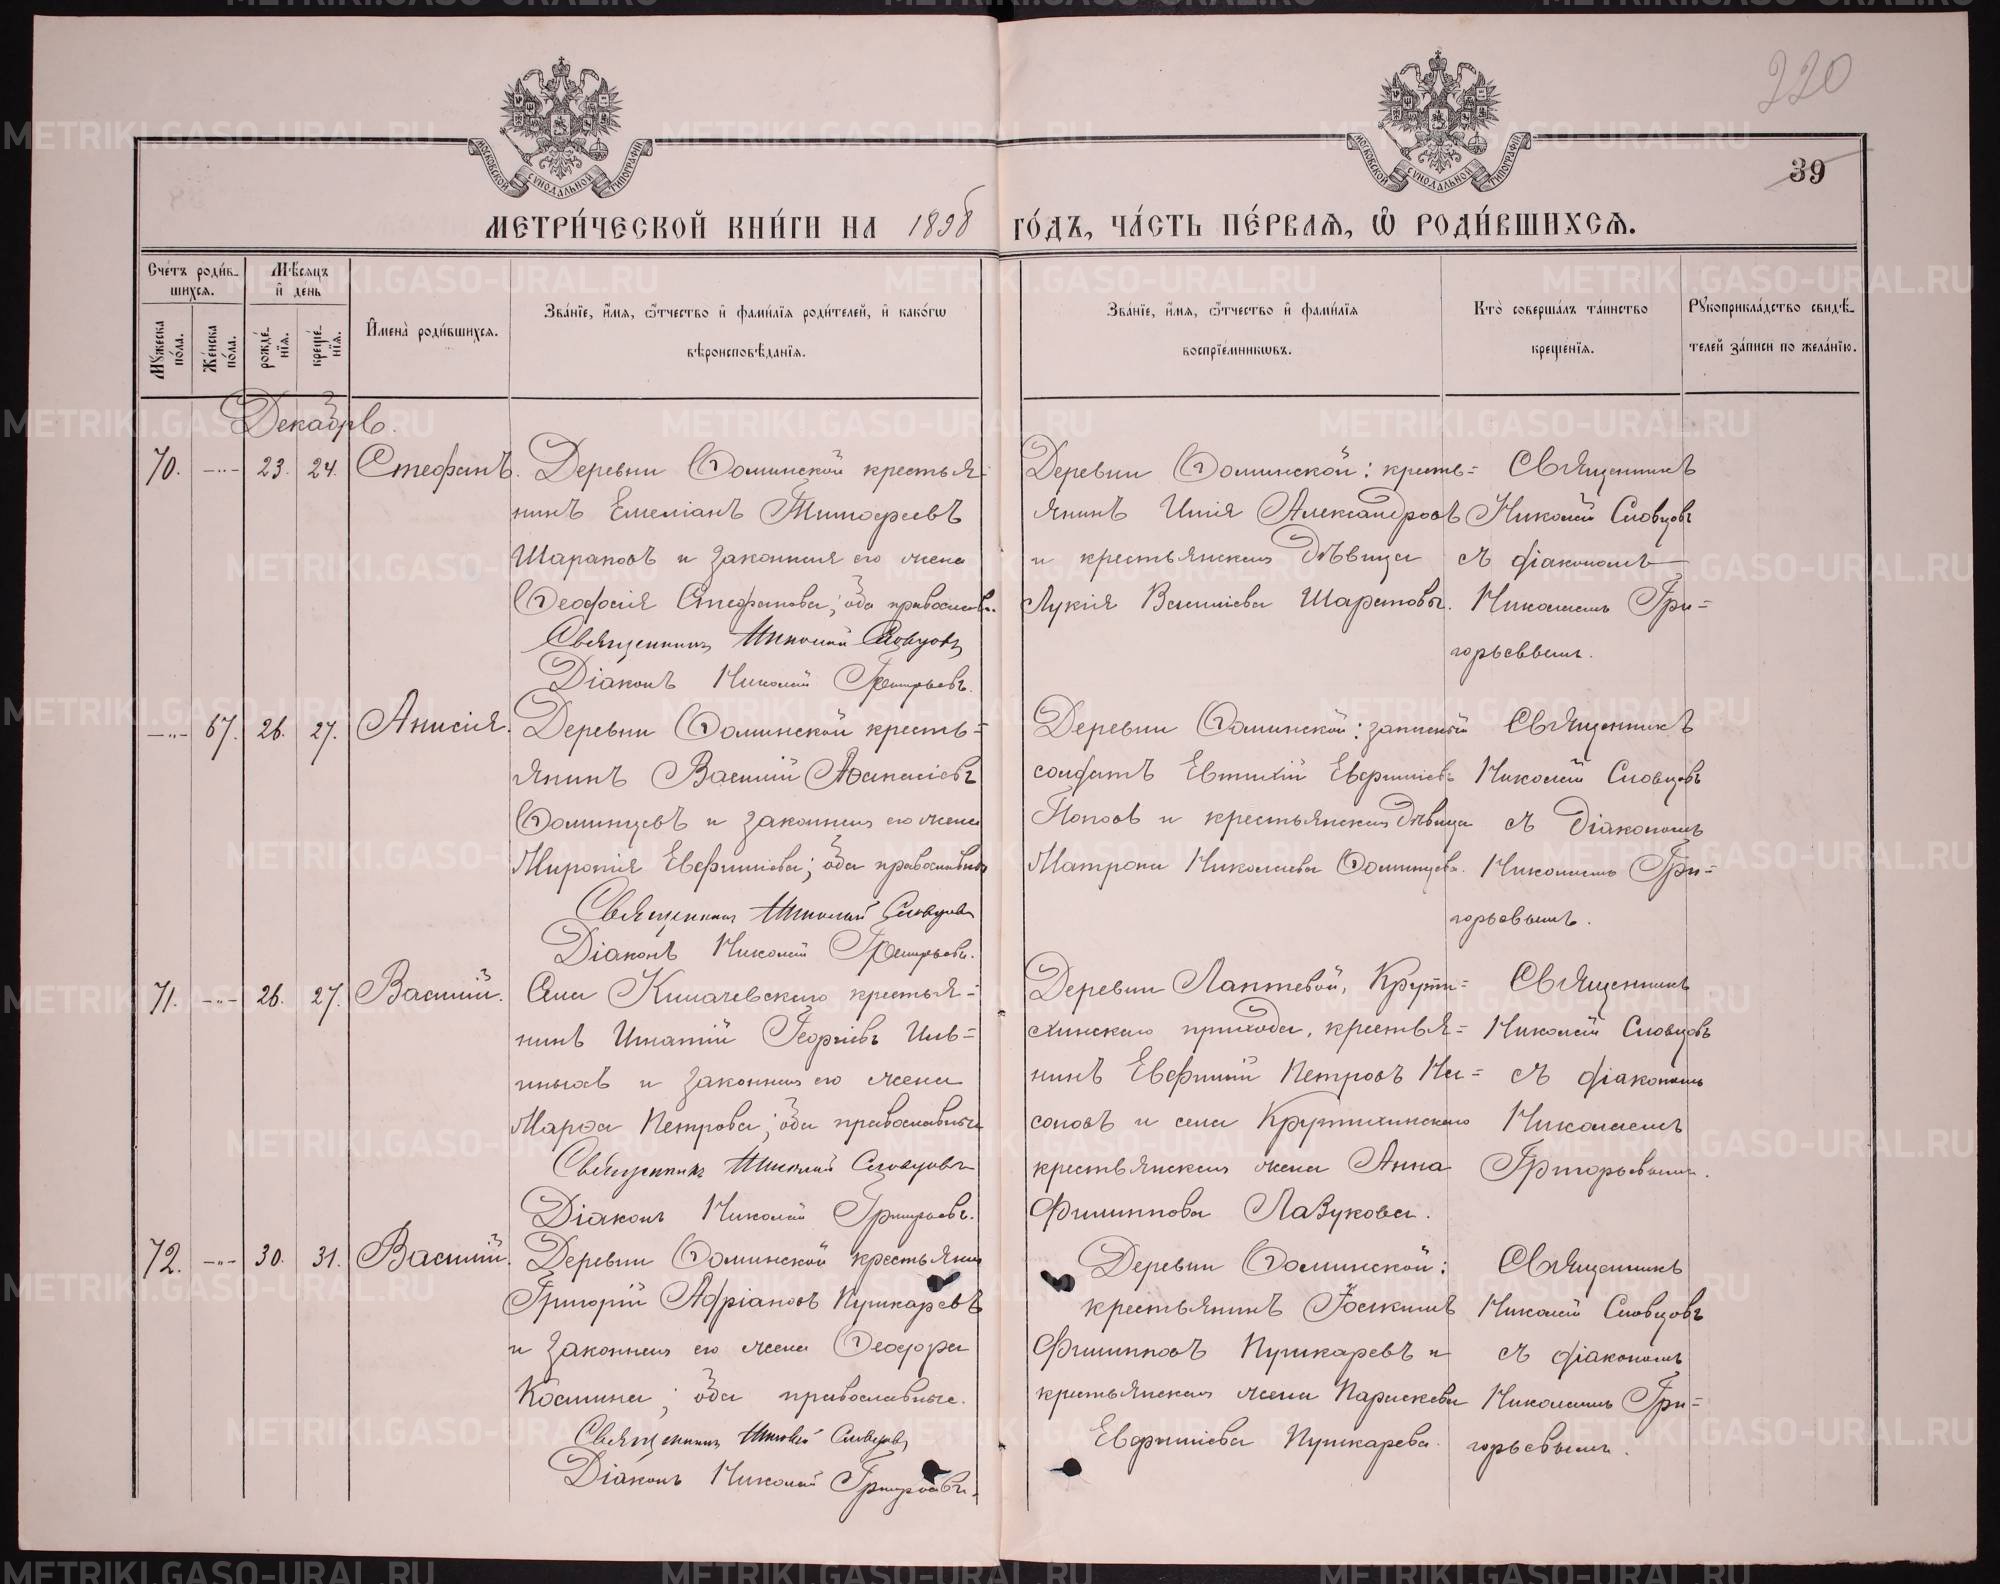 220
39
МЕТРИ́ЧЕСКОЙ КНИ́ГИ НА 1898 ГО́ДЪ, ЧА́СТЬ ПЕ́РВАЯ, Ѽ РОДИ́ВШИХСЯ.
Сче́тъ роди́вшихся.
Мѣ́сяцъ и҆ де́нь
Мꙋ́жеска по́ла.
Же́нска по́ла.
рожде́нїя.
креще́нїя.
И҆мена̀ роди́вшихся.
Зва́нїе, и҆́мя, ѻ҆́тчество и҆ фами́лїя роди́телей, и҆ како́гѡ
вѣроисповѣ́данїя.
Зва́нїе, и҆́мя, ѻ҆́тчество и҆ фами́лїя
воспрїе́мникѡвъ.
Кто̀ соверша́лъ та́инство
креще́нїя.
Рꙋкоприкла́дство свидѣ́-
телей за́писи по жела́нїю.
Декабрь.
70. -"- 23. 24. Стефанъ.
Деревни Ѳоминской крестья-
нинъ Емеліанъ Тимофеевъ
Шараповъ и законная его жена
Ѳеодосія Стефанова; оба православн.
Священникъ Николай Словцовъ
Діаконъ Николай Григорьевъ.
Деревни Ѳоминской: кресть=
янинъ Илія Александровъ
и крестьянская дѣвица
Лукія Василіева Шарапова.
Священникъ
Николай Словцовъ
съ діакономъ
Николаемъ Гри=
горьевымъ.
-"- 67. 26. 27. Анисія.
Деревни Ѳоминской кресть=
янинъ Василій Аѳанасіевъ
Ѳоминцевъ и законная его жена
Миропія Евфиміева; оба православные
Священникъ Николай Словцовъ
Діаконъ Николай Григорьевъ.
Деревни Ѳоминской: запасный
солдатъ Евтихій Евфиміевъ
Поповъ и крестьянская дѣвица
Матрона Николаева Ѳоминцева.
Священникъ
Николай Словцовъ
съ Діакономъ
Николаемъ Гри=
горьевымъ.
71. -"- 26. 27. Василій.
Села Килачевскаго крестья=
нинъ Игнатій Георгіевъ Иль=
иныхъ и законная его жена
Марѳа Петрова; оба православные
Священникъ Николай Словцовъ
Діаконъ Николай Григорьевъ.
Деревни Лаптевой, Крути=
хинскаго прихода, крестья=
нинъ Евфимій Петровъ Ни=
соновъ и села Крутихинскаго
крестьянская жена Анна
Филиппова Лазукова.
Священникъ
Николай Словцовъ
съ діакономъ
Николаемъ
Григорьевымъ.
72. -"- 30. 31. Василій.
Деревни Ѳоминской крестьянин
Григорій Адріановъ Пушкаревъ
и законная его жена Ѳеодора
Космина; оба православные.
Священникъ Николай Словцовъ
Діаконъ Николай Григорьевъ.
Деревни Ѳоминской:
крестьянинъ Іоакимъ
Филипповъ Пушкаревъ и
крестьянская жена Параскева
Евфиміева Пушкарева.
Священникъ
Николай Словцовъ
съ діакономъ
Николаемъ Гри=
горьевымъ.
METRIKI.GASO-URAL.RU